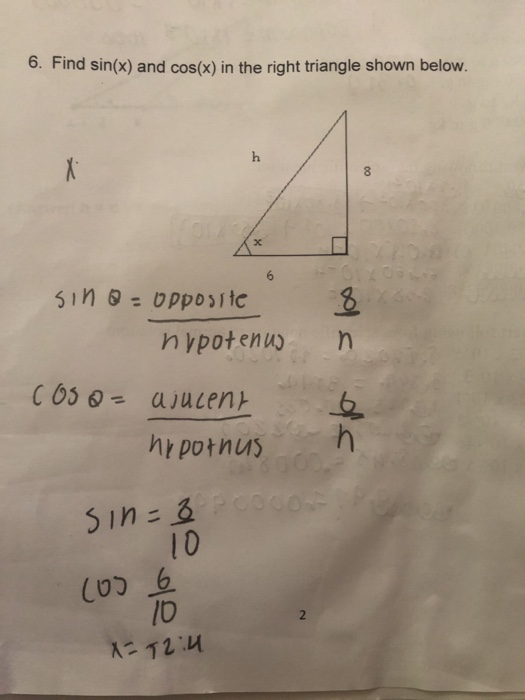 6. Find sin(x) and cos(x) in the right triangle shown below.
x
h
8
x
6
sin θ = opposite 8
hypotenus h
cos θ = ajucent 6
hypothus h
sin = 8
10
cos 6
10
2
x =